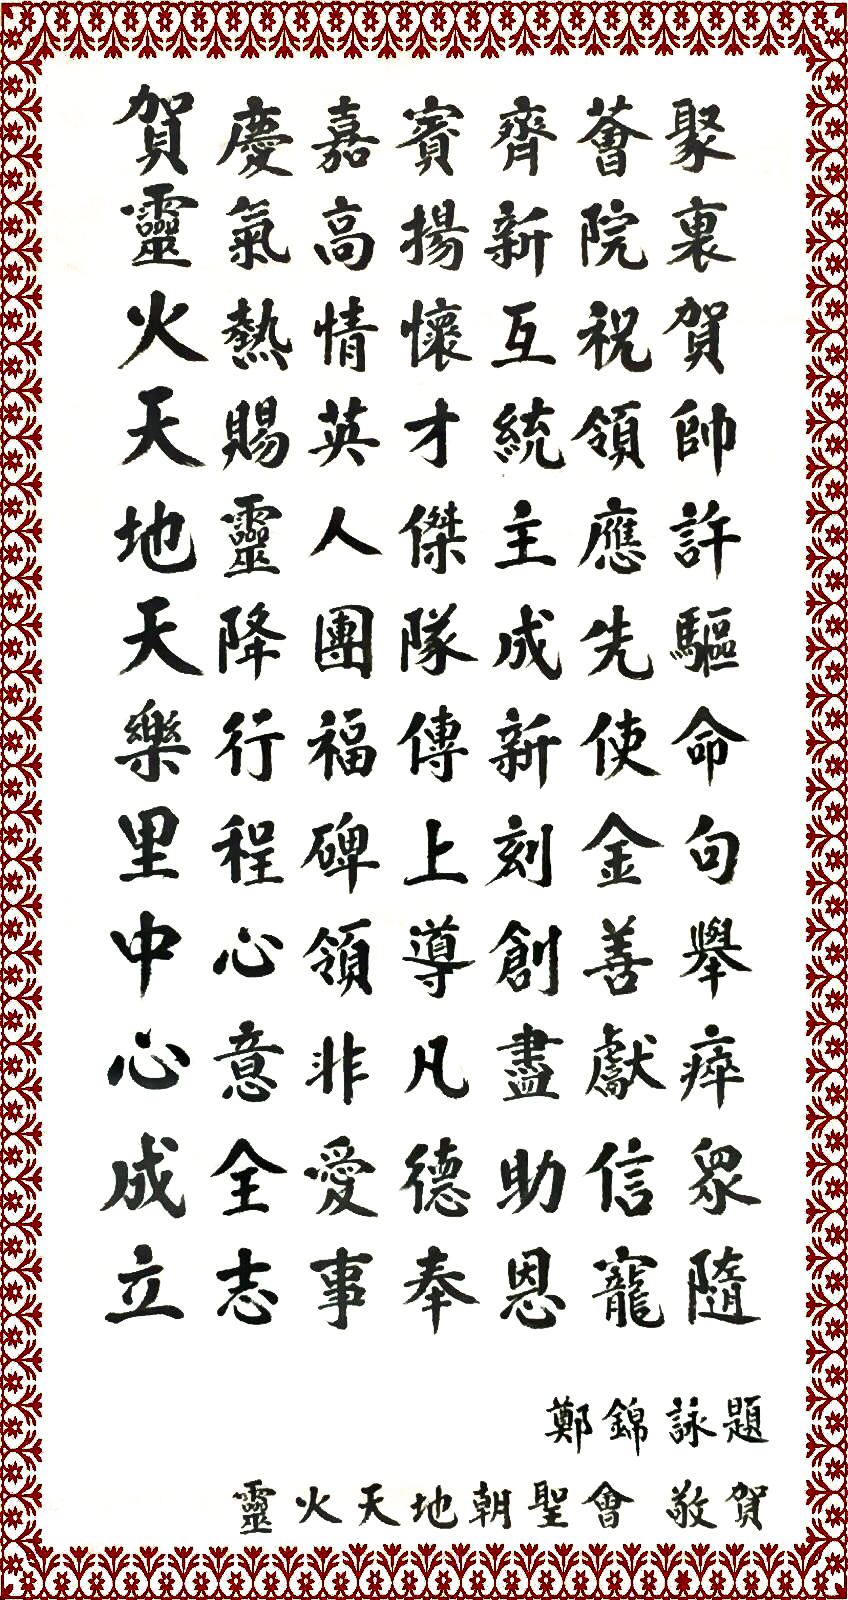 賀慶嘉賓齊薈聚
靈氣高揚新院裏
火熱情懷互祝賀
天賜英才統領帥
地靈人傑主應許
天降團隊成先驅
樂行福傳新使命
里程碑上刻金句
中心領導創善舉
心意非凡盡獻瘁
成全愛德助信眾
立志事奉恩寵隨
鄭錦詠題
靈火天地朝聖會 敬賀